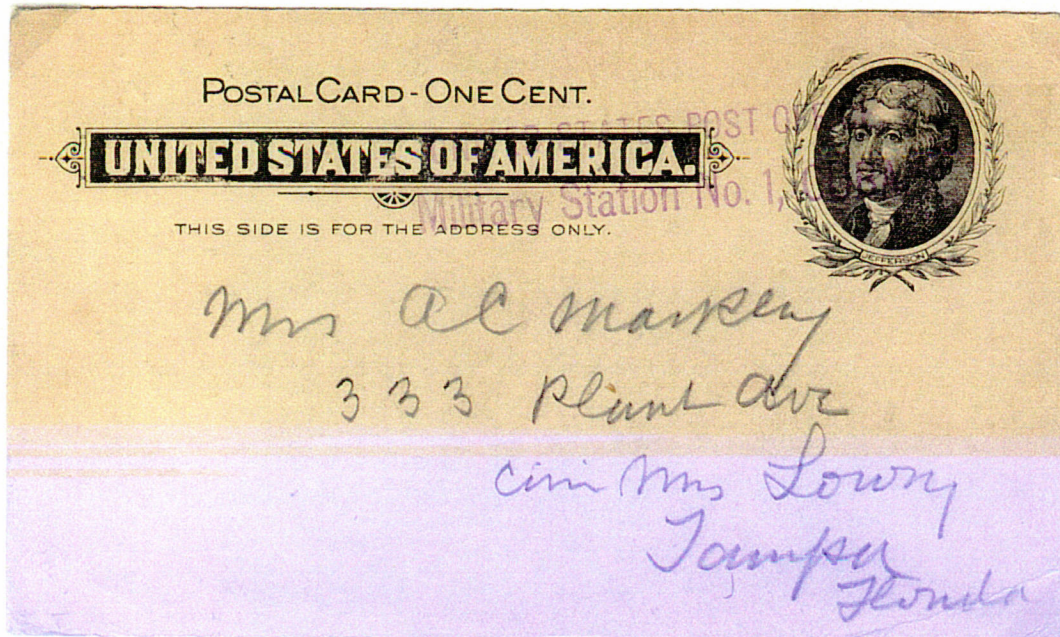 POSTAL CARD - ONE CENT.
STATES POST
UNITED STATES OF AMERICA.
Military Station No. 1,
THIS SIDE IS FOR THE ADDRESS ONLY.
JEFFERSON
Mrs A C Markley
333 Plant Ave
Mrs Lowry
Tampa
Florida